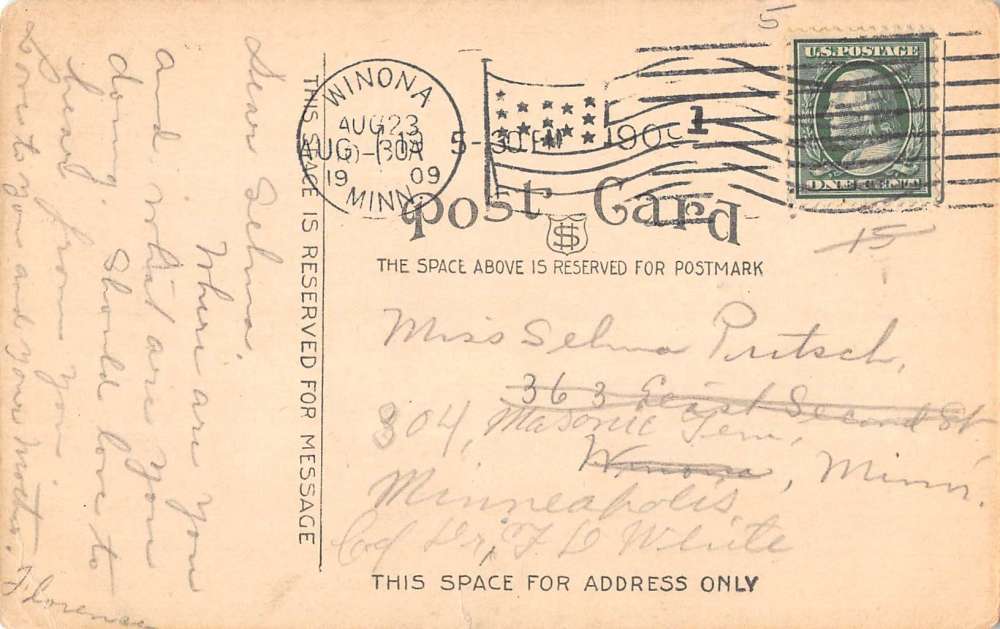 Dear Selma,
Where are you
and what are you
doing. Should love to
hear from you.
Love to you and your mother.
Florence
THIS SPACE IS RESERVED FOR MESSAGE
5
U.S. POSTAGE
ONE CENT
WINONA
AUG 23
19 09
MINN.
5-30 PM 1909
1
Post Card
THE SPACE ABOVE IS RESERVED FOR POSTMARK
15
Miss Selma Pritsch,
363 East Second St
304, Masonic Tem,
Winona, Minn.
Minneapolis
c/o Dr, F D White
THIS SPACE FOR ADDRESS ONLY